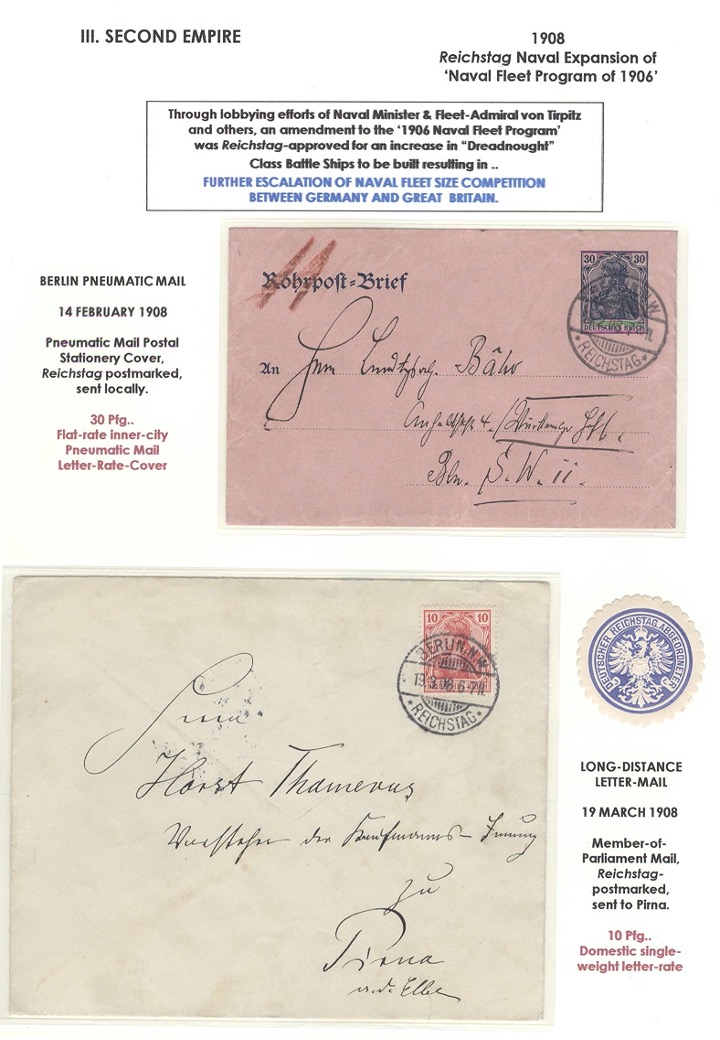 III. SECOND EMPIRE
1908
Reichstag Naval Expansion of
‘Naval Fleet Program of 1906’
Through lobbying efforts of Naval Minister & Fleet-Admiral von Tirpitz
and others, an amendment to the ‘1906 Naval Fleet Program’
was Reichstag-approved for an increase in “Dreadnought”
Class Battle Ships to be built resulting in ..
FURTHER ESCALATION OF NAVAL FLEET SIZE COMPETITION
BETWEEN GERMANY AND GREAT BRITAIN.
BERLIN PNEUMATIC MAIL
14 FEBRUARY 1908
Pneumatic Mail Postal
Stationery Cover,
Reichstag postmarked,
sent locally.
30 Pfg..
Flat-rate inner-city
Pneumatic Mail
Letter-Rate-Cover
Rohrpost-Brief
30 30
DEUTSCHES REICH
REICHSTAG
An Herrn
Bln. S.W. 11.
10 10
BERLIN N.W.
19.3.08.6-7N.
*REICHSTAG*
Horst Thamerus
Vorsteher der Kaufmanns-Innung
zu
Pirna
a.d. Elbe
DEUTSCHER REICHSTAG ABGEORDNETER
LONG-DISTANCE
LETTER-MAIL
19 MARCH 1908
Member-of-
Parliament Mail,
Reichstag-
postmarked,
sent to Pirna.
10 Pfg..
Domestic single-
weight letter-rate